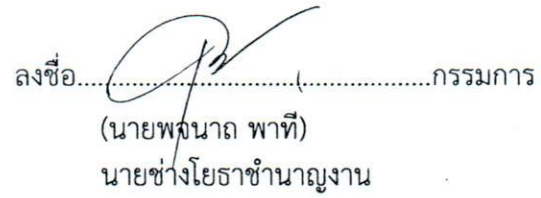 ลงชื่อ.......................................กรรมการ
(นายพจนาถ พาที)
นายช่างโยธาชำนาญงาน